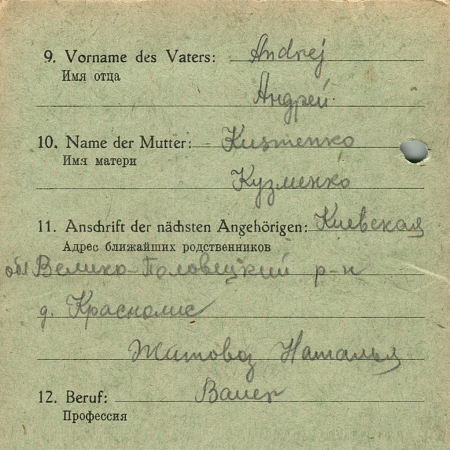 9. Vorname des Vaters: Andrej
Имя отца
Андрей
10. Name der Mutter: Kusmenko
Имя матери
Кузменко
11. Anschrift der nächsten Angehörigen: Киевская
Адрес ближайших родственников
обл Велико-Половецкий р-н
д. Краснолис
Наталья
12. Beruf: Bauer
Профессия